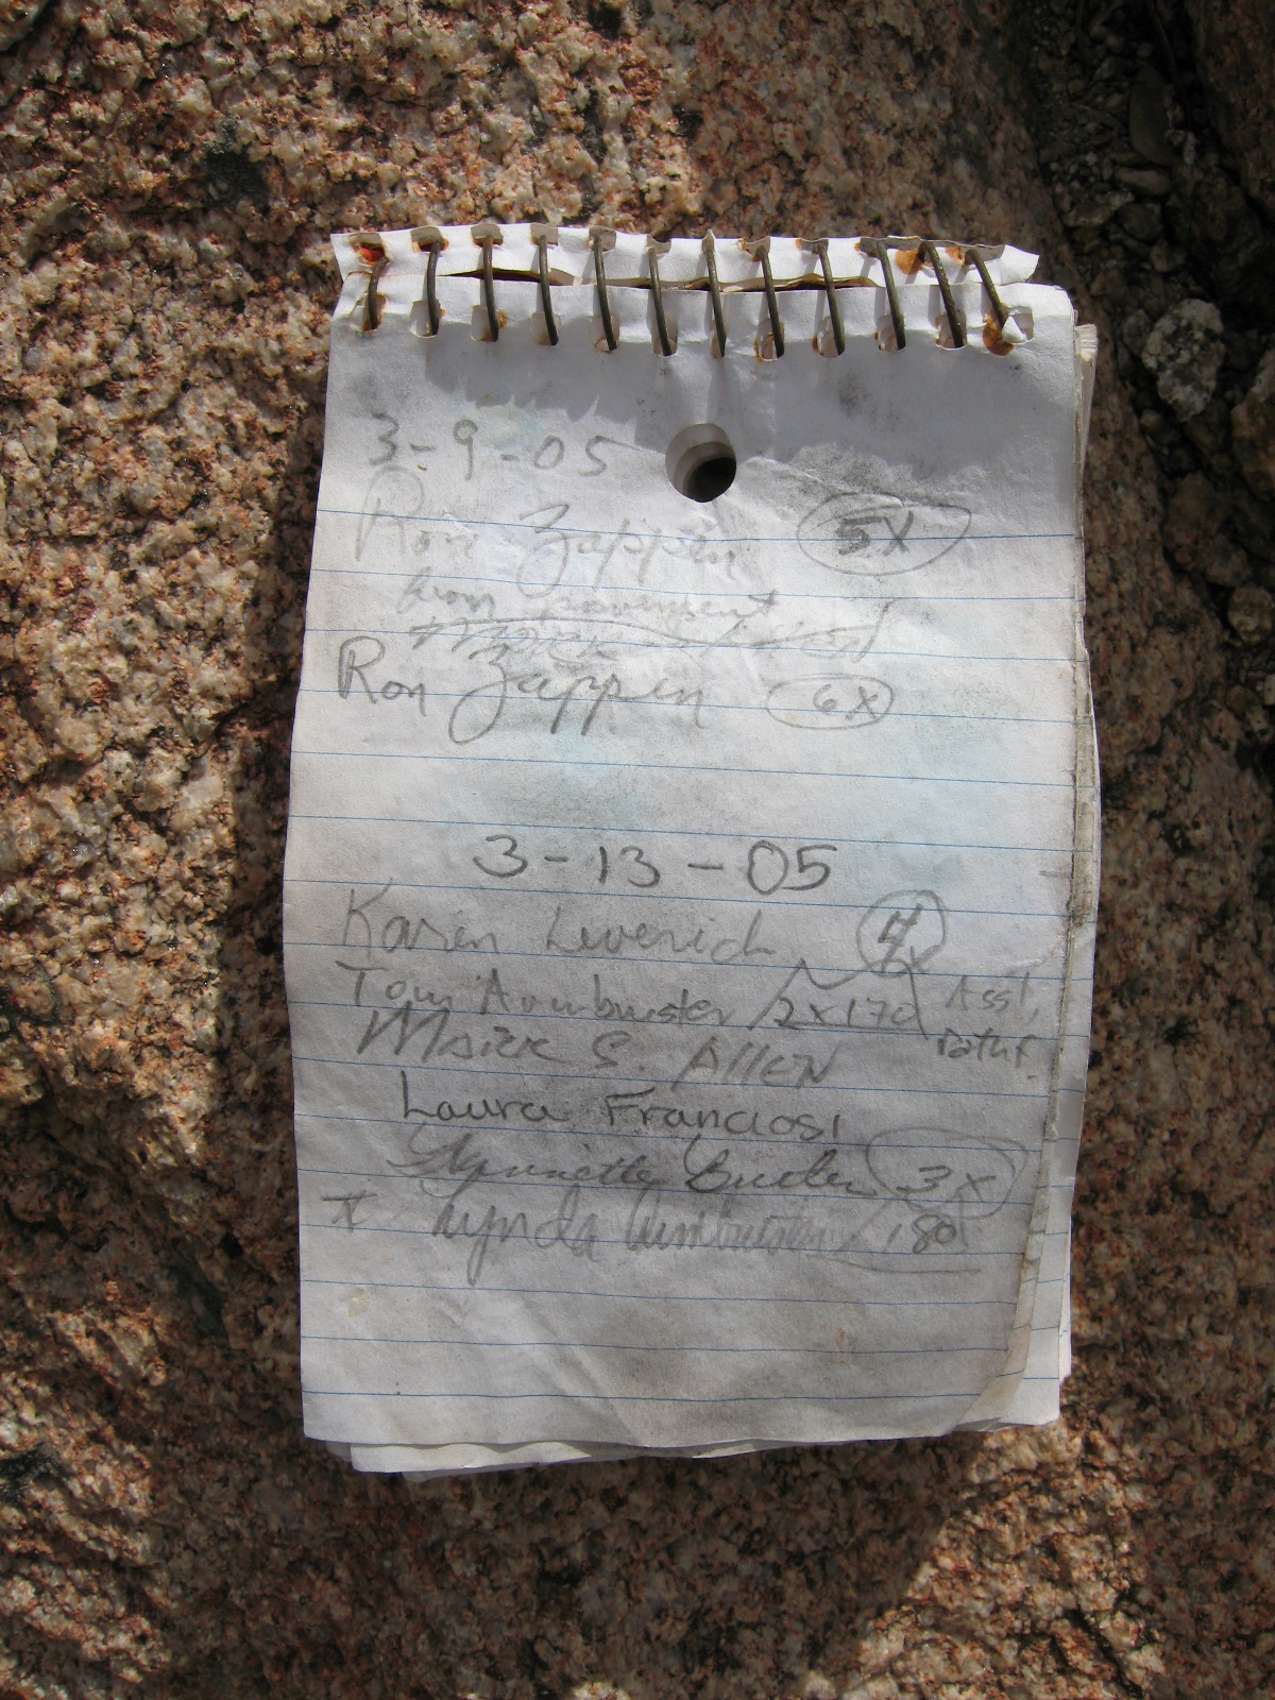 3-9-05
Ron Zappen 5X
from pavement
Ron Zappen 6X
3-13-05
Karen Leverich
Tom Armbruster 2x170 Ass't,
Mark S. Allen
Laura Franciosi
3X
Lynda Armbruster 180